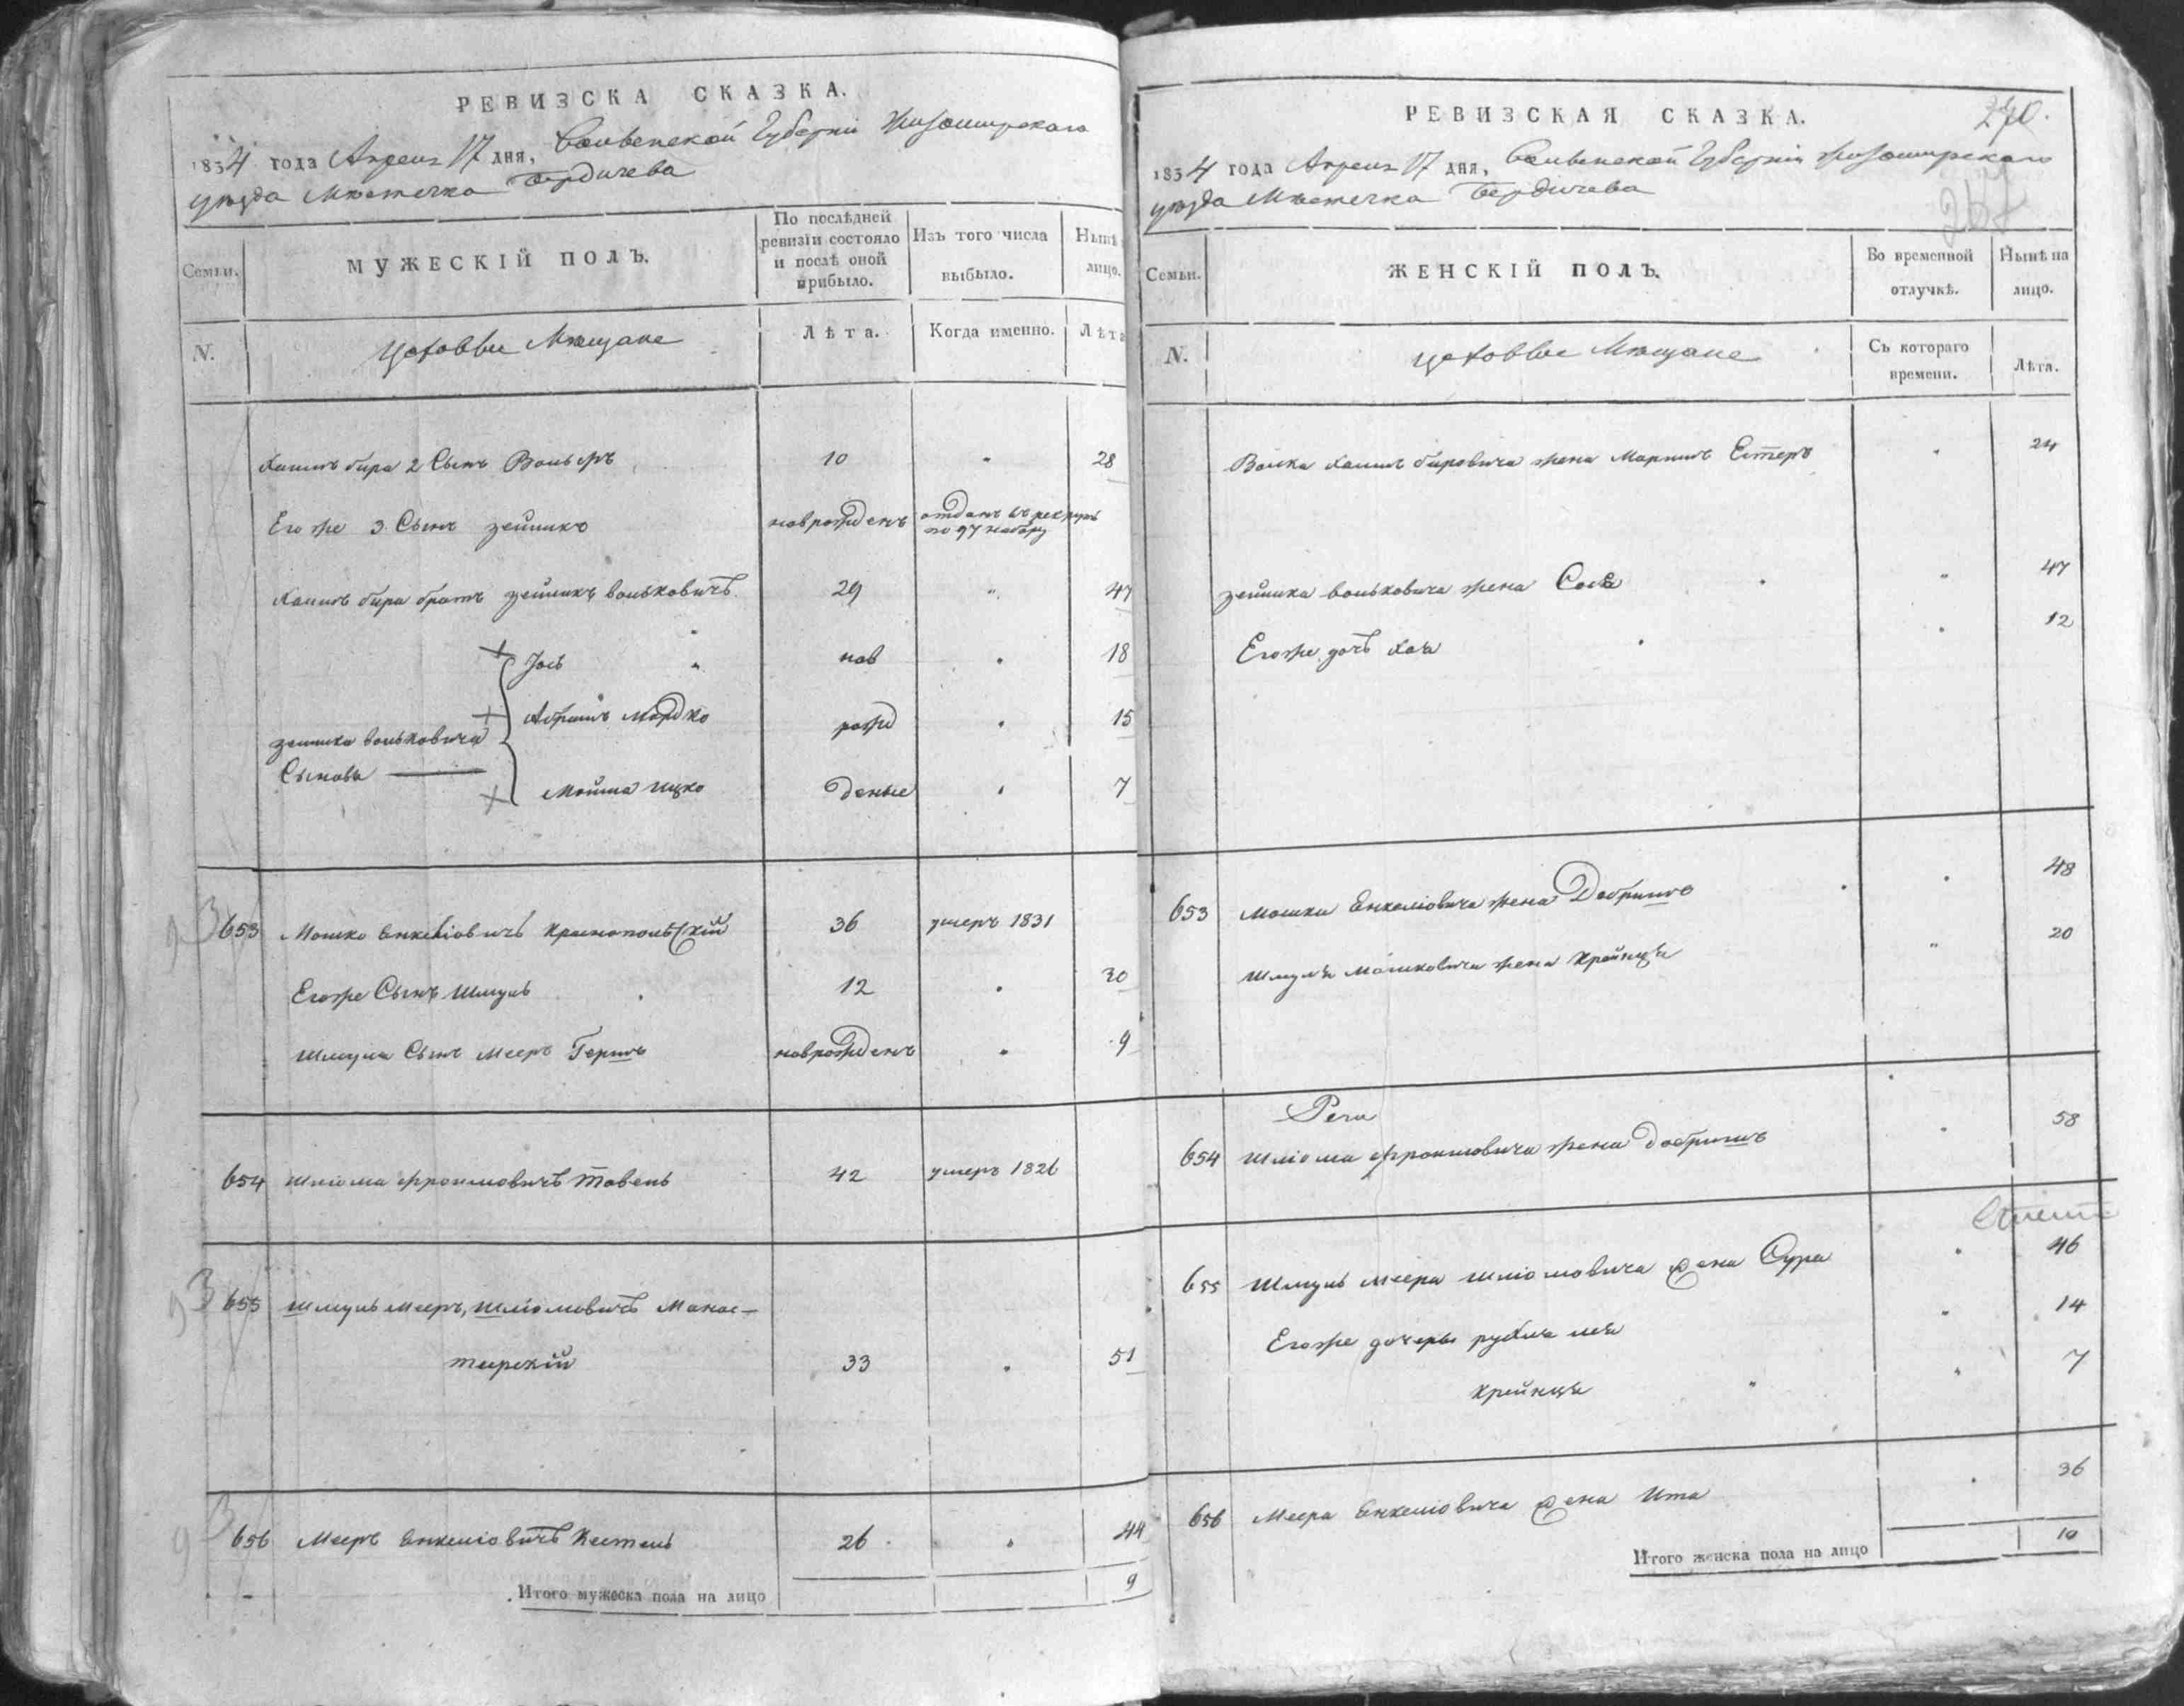 РЕВИЗСКА СКАЗКА.
1834 года Апреля 17 дня, Волынской Губернiи Житомирскаго
уѣзда Мѣстечка Бердичева
Семьи.
МУЖЕСКIЙ ПОЛЪ.
По послѣдней ревизiи состояло и послѣ оной прибыло.
Изъ того числа выбыло.
Нынѣ
лицо.
N.
Цеховые Мѣщане
Лѣта.
Когда именно.
Лѣта
2 Сынъ Вольфъ 10 " 28
Его же 3 Сынъ Зейликъ новрожденъ отданъ въ рекруты по 97 набору
братъ Зейликъ Вольковичъ 29 " 47
Iось " нов " 18
Абрамъ Мордко рожд " 15
Зейлика Вольковича
Сыновья
Мойша Ицко денные " 7
653 Мошко Енкелiовичъ Краснопольскiй 36 умеръ 1831
Егоже Сынъ Шмуль 12 " 30
Шмуля Сынъ Мееръ Гершъ новрожденъ " 9
654 Шлiома Фроимовичъ 42 умеръ 1826
655 Шмуль Мееръ, Шлiомовичъ Монас-
тырскiй 33 " 51
656 Мееръ Енкелiовичъ 26 " 44
Итого мужеска пола на лицо 9
РЕВИЗСКАЯ СКАЗКА.
270.
267
1834 года Апреля 17 дня, Волынской Губернiи Житомирскаго
уѣзда Мѣстечка Бердичева
Семьи.
ЖЕНСКIЙ ПОЛЪ.
Во временной отлучкѣ.
Нынѣ на лицо.
N.
Цеховые Мѣщане
Съ котораго времени.
Лѣта.
жена Естеръ " 24
Зейлика Вольковича жена " 47
Егоже дочь Хая " 12
653 Мошки Енкелiовича жена Добришъ " 48
Шмуля Мошковича жена Крейнця " 20
654 Шлiома Фроимовича жена Добришъ " 58
655 Шмуль Меера Шлiомовича жена Сура " 46
Егоже дочеры лея " 14
Крейнця " " 7
656 Меера Енкелiовича жена Ита " 36
Итого женска пола на лицо 10